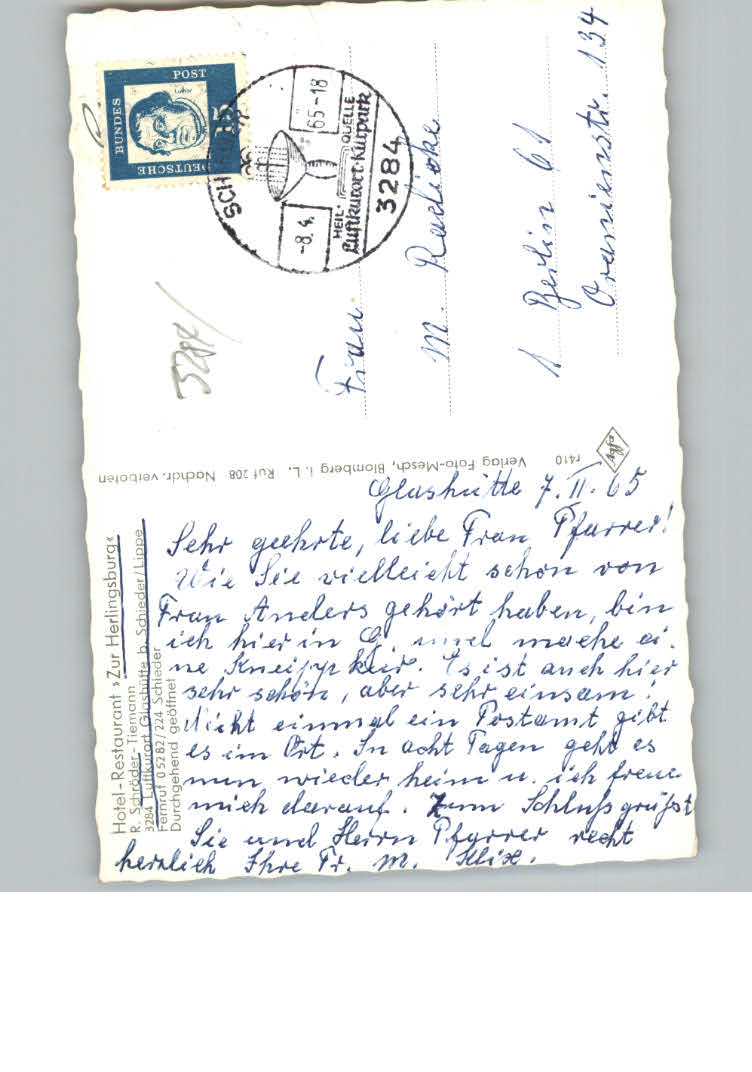 Hotel-Restaurant »Zur Herlingsburg«
R. Schröder-Tiemann
3284 Luftkurort Glashütte b. Schieder/Lippe
Fernruf 0 52 82 / 224 Schieder
Durchgehend geöffnet
Glashütte 7. II. 65
Sehr geehrte, liebe Frau Pfarrer!
Wie Sie vielleicht schon von
Frau Anders gehört haben, bin
ich hier in G. und mache ei-
ne Kneippkur. Es ist auch hier
sehr schön, aber sehr einsam!
Nicht einmal ein Postamt gibt
es im Ort. In acht Tagen geht es
nun wieder heim u. ich freue
mich darauf. Zum Schluß grüßt
Sie und Herrn Pfarrer recht
herzlich Ihre Fr. M.
Verlag Foto-Mesch, Blomberg i. L. Ruf 208 Nachdr. verboten
r410
efby
DEUTSCHE
BUNDES
POST
15
-8.4.
65-18
HEIL-
QUELLE
Luftkurort-Kurpark
3284
3284/
Frau
M. Radicke
1 Berlin 61
Oranienstr. 134